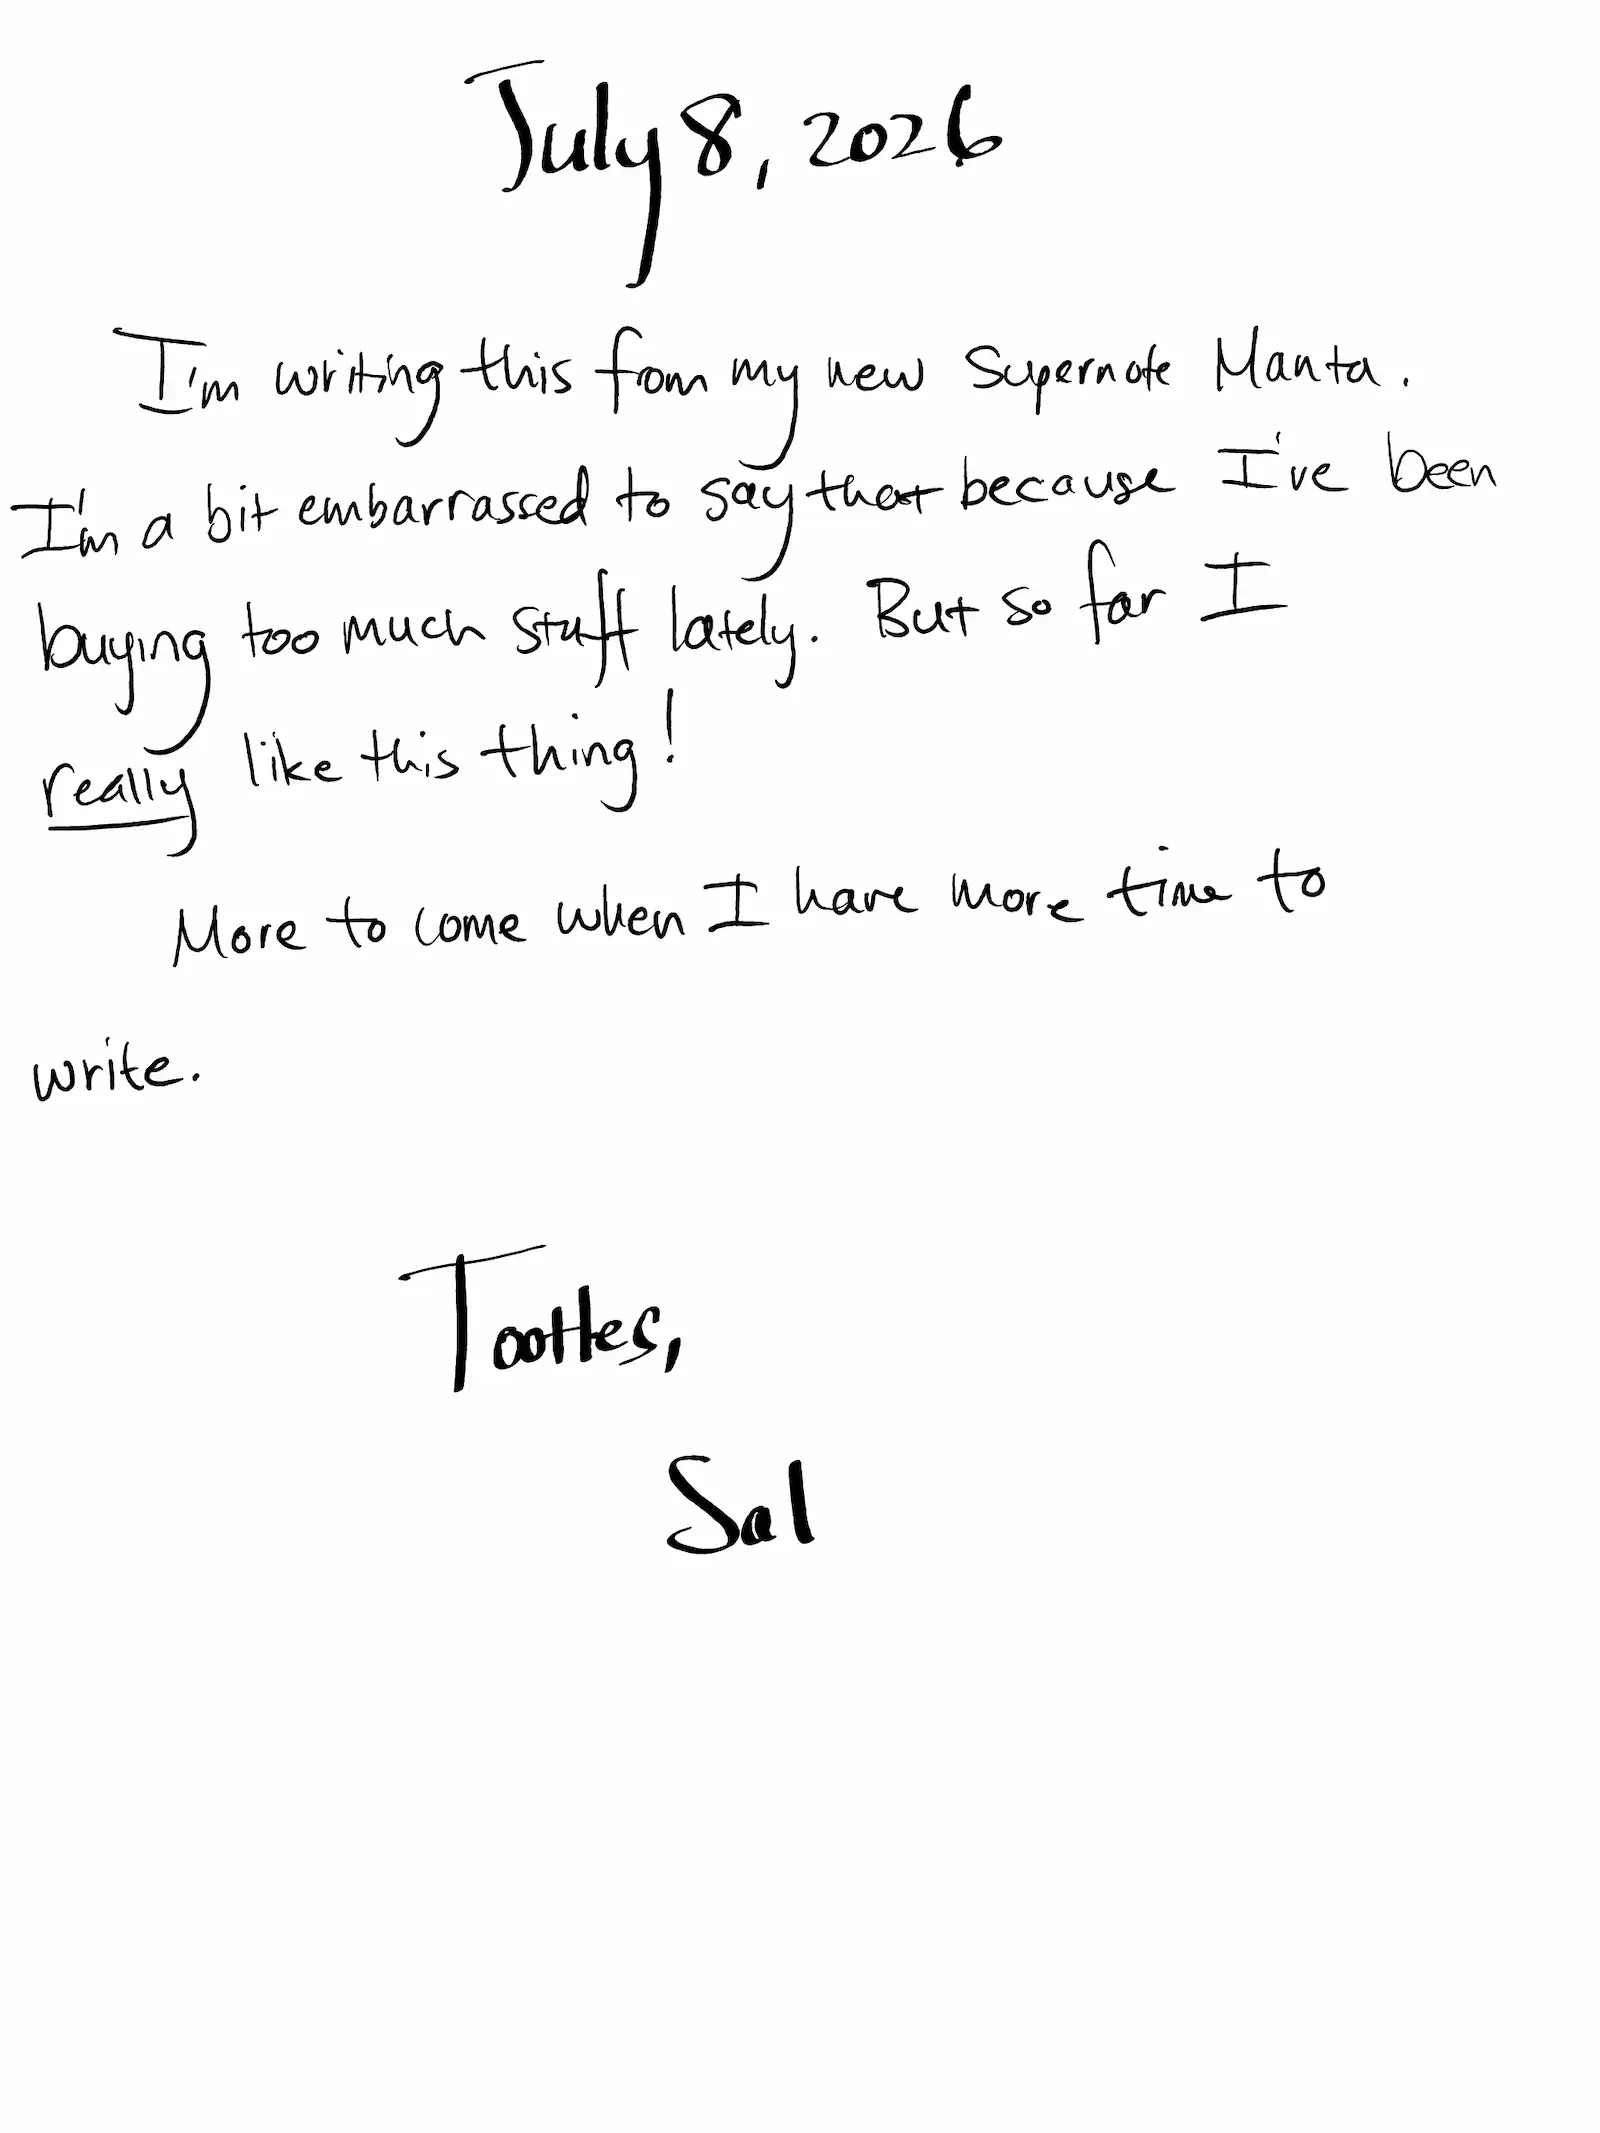 July 8, 2026
I'm writing this from my new Supernote Manta.
I'm a bit embarrassed to say that because I've been
buying too much stuff lately. But so far I
really like this thing!
More to come when I have more time to
write.
Toottes,
Sal